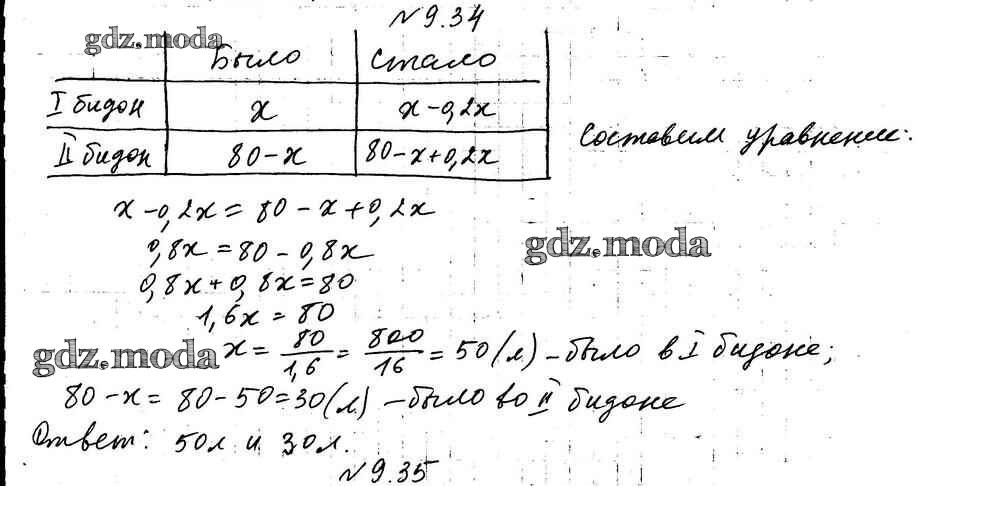 № 9.34
gdz.moda
Было Стало
I бидон x x-0,2x
II бидон 80-x 80-x+0,2x
Составим уравнение:
x-0,2x = 80-x+0,2x
0,8x = 80-0,8x
gdz.moda
0,8x+0,8x=80
1,6x = 80
gdz.moda
x = 80/1,6 = 800/16 = 50(л) - было в I бидоне;
80-x = 80-50=30(л) - было во II бидоне
Ответ: 50л и 30л.
№ 9.35